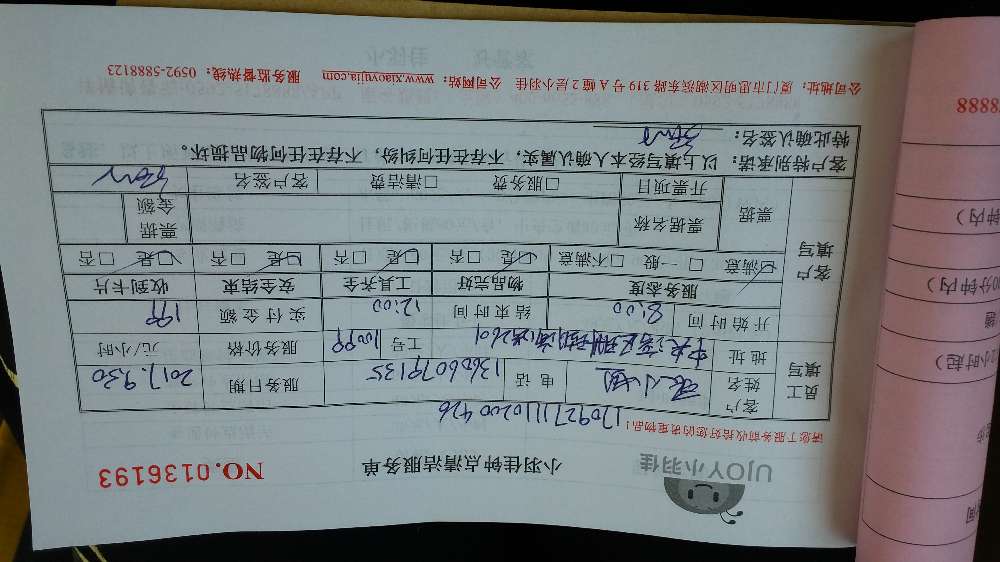 UJOY小羽佳
小羽佳钟点清洁服务单
NO.0136193
请您于服务前收拾好您的贵重物品！
1709271110200426
员工填写 客户姓名 张小姐 电话 13606079135 服务日期 2017.9.30
地址 工号 10099 服务价格 元/小时
开始时间 8:00 结束时间 12:00 实付金额 199
客户填写 服务态度 物品完好 工具齐全 安全结束 收到卡片
☑满意 □一般 □不满意 ☑是 □否 ☑是 □否 ☑是 □否 ☑是 □否
票据 票据名称 票据金额
开票项目 □服务费 □清洁费 客户签名
客户特别承诺：以上填写经本人确认属实，不存在任何纠纷，不存在任何物品损坏。
特此确认签名：
公司地址：厦门市思明区湖滨东路 319 号 A 幢 2 层小羽佳 公司网站：www.xiaoyujia.com 服务监督热线：0592-5888123
8888
钟内）
0分钟内）
小时起）
间